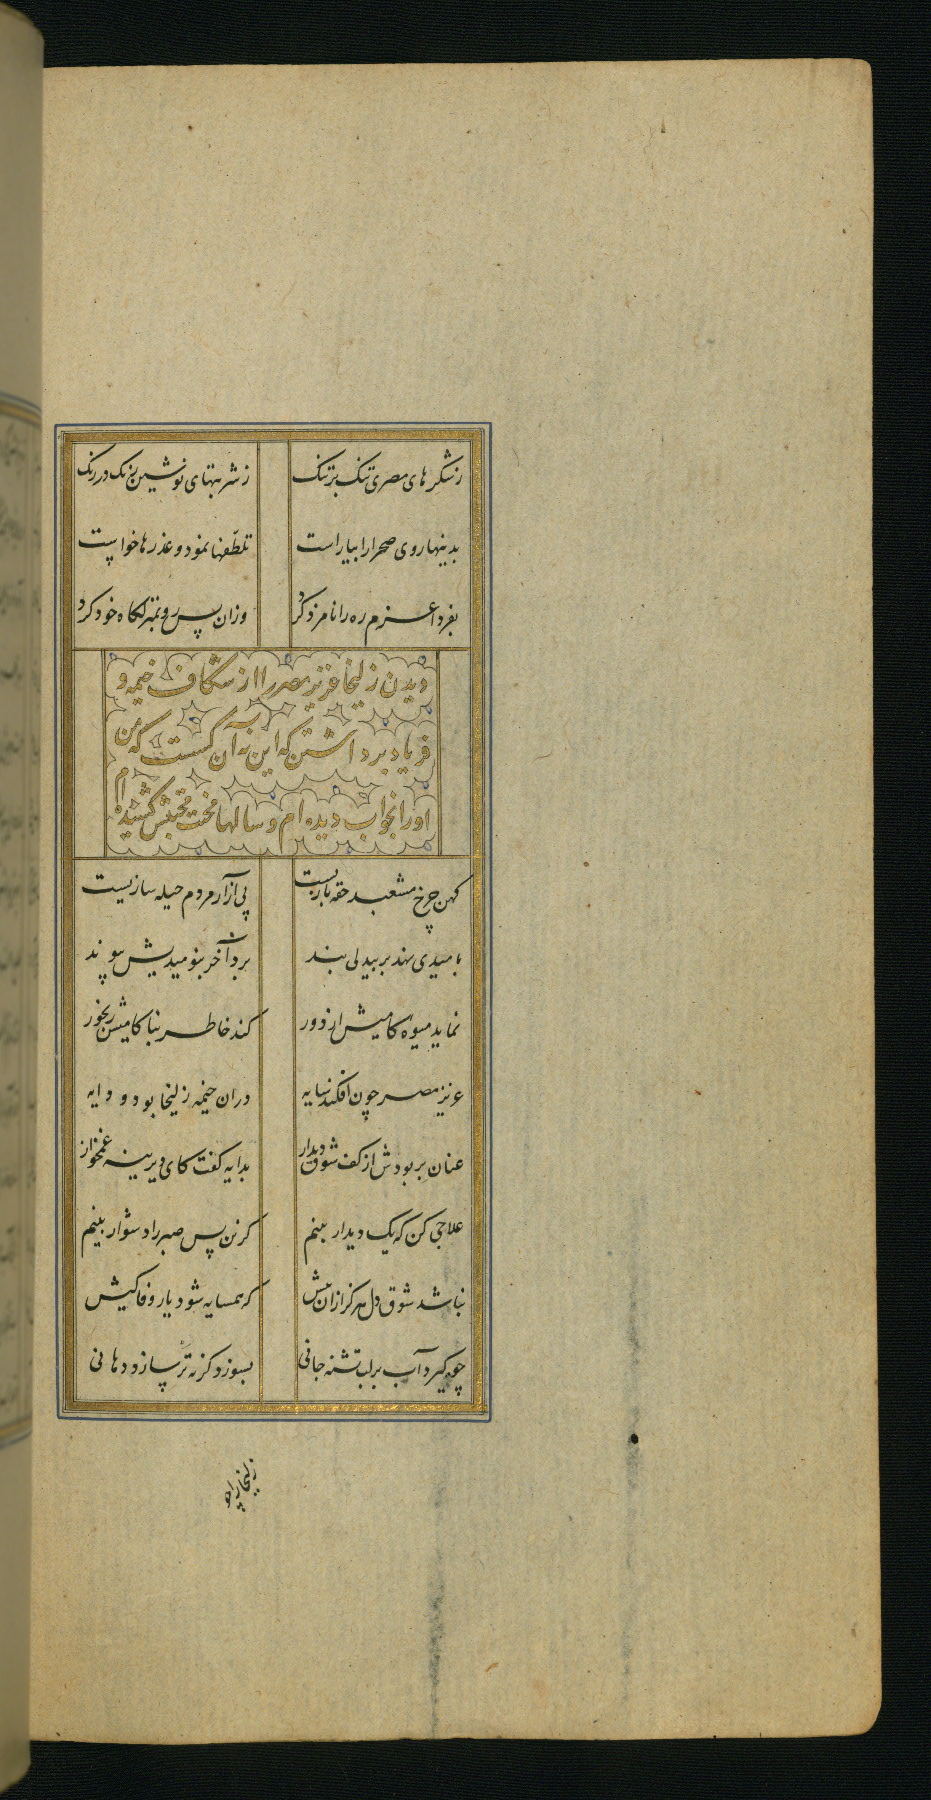 ز شکرهای مصری تنک بر تنک
ز شربتهای نوشین رنک در رنک
بدینها روی صحرا را بیاراست
تلطّفها نمود و عذرها خواست
بفردا عزم ره را نامزد کرد
وزان پس رو بمنزلکاه خود کرد
دیدن زلیخا عزیز مصر را از شکاف خیمه و
فریاد برداشتن که این نه آن کسست که من
او را بخواب دیده ام و سالها محنت محبتش کشیده ام
کهن چرخ مشعبد حقه بازیست
پی آزار مردم حیله سازیست
بامیدی نهد بر بیدلی بند
برد آخر بنومیدیش پیوند
نماید میوه کامیش از دور
کند خاطر بناکامیش رنجور
عزیز مصر چون افکند سایه
دران خیمه زلیخا بود و دایه
عنان بربودش از کف شوق دیدار
بدایه کفت کای دیرینه غمخوار
علاجی کن که یک دیدار بینم
کزین پس صبر را دشوار بینم
نباشد شوق دل هرکز ازان بیش
که همسایه شود یار وفا کیش
چو کیرد آب بر لب تشنه جانی
بسوزد کر نه تر سازد دهانی
زلیخا را چو